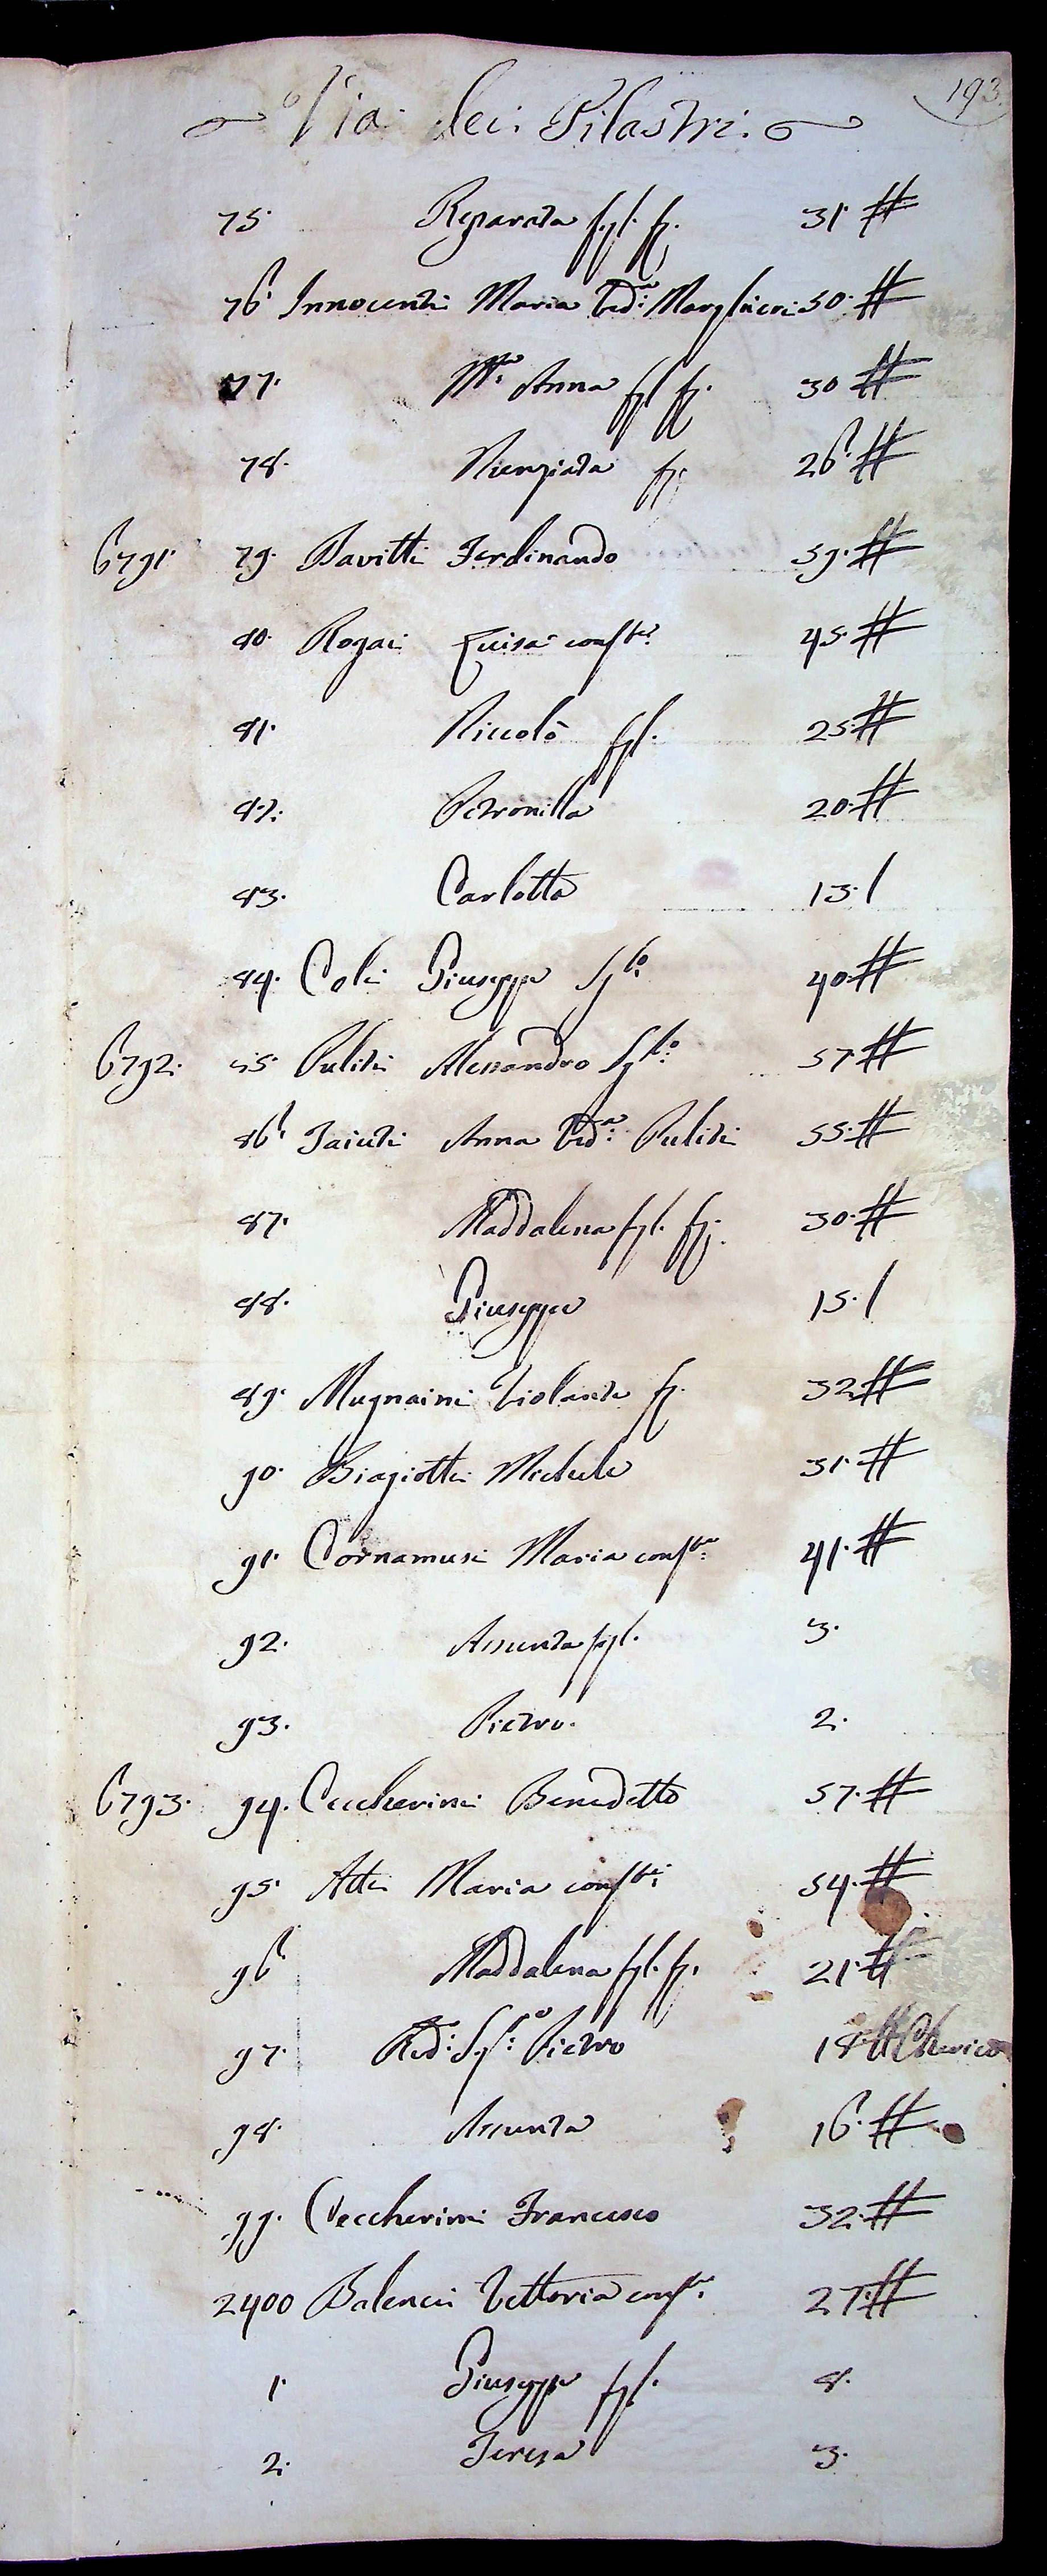 193.
Via dei Pilastri.
75. Reparata figl. f. 31. #
76. Innocenti Maria Ved.a Margheri 50. #
77. M.a Anna figl f. 30 #
78. Nunziata f. 26. #
6791. 79. Davitti Ferdinando 59. #
80. Rogai Luisa cons.te 45. #
81. Niccolò figl. 25. #
82. Petronilla 20. #
83. Carlotta 13. /
84. Coli Giuseppe Sg.lo 40. #
6792. 85. Puliti Alessandro Sg.lo 57. #
86. Taiuti Anna Ved.a Puliti 55. #
87. Maddalena figl. f. 30. #
88. Giuseppe 15. /
89. Mugnaini Violante f. 32. #
90. Biagiotti Michele 31. #
91. Cornamusi Maria cons.te 41. #
92. Assunta figl. 3.
93. Pietro. 2.
6793. 94. Ceccherini Benedetto 57. #
95. Atti Maria cons.te 54. #
96. Maddalena figl. f. 21. #
97. Pietro 18. # Cherico
98. Assunta 16. #
99. Ceccherini Francesco 32. #
2400 Balenci Vettoria cons.te 27. #
1. Giuseppe figl. 8.
2. Teresa 3.